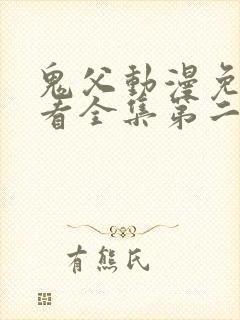 鬼父動漫免
看全集第二
有熊氏